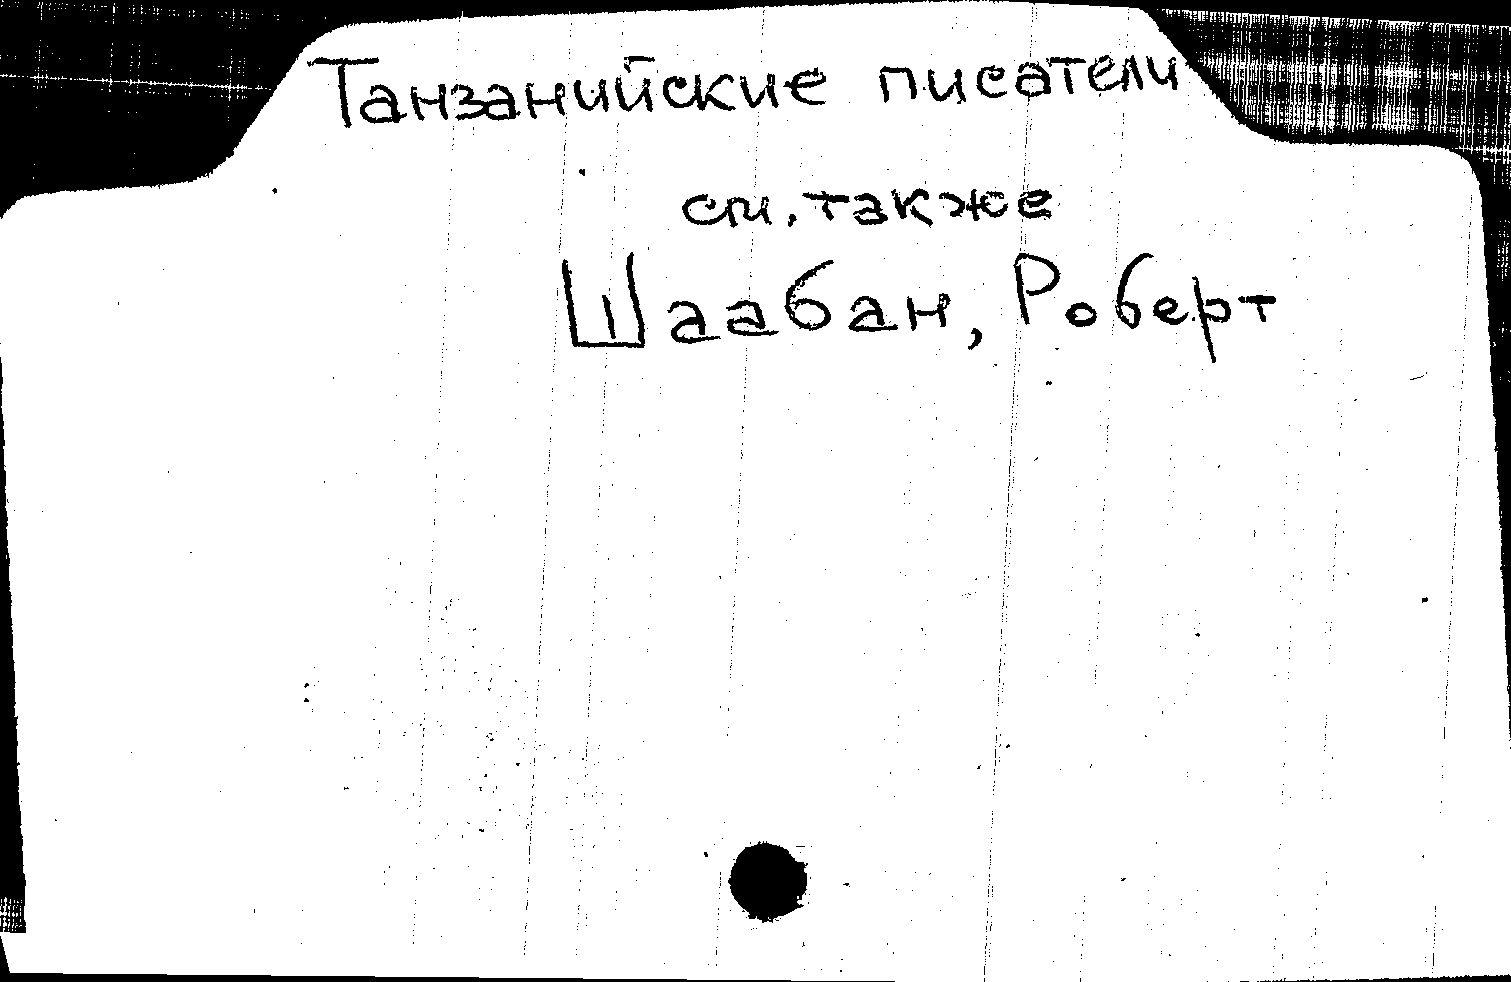 Танзанийские писатели
см. также
Шаабан, Роберт